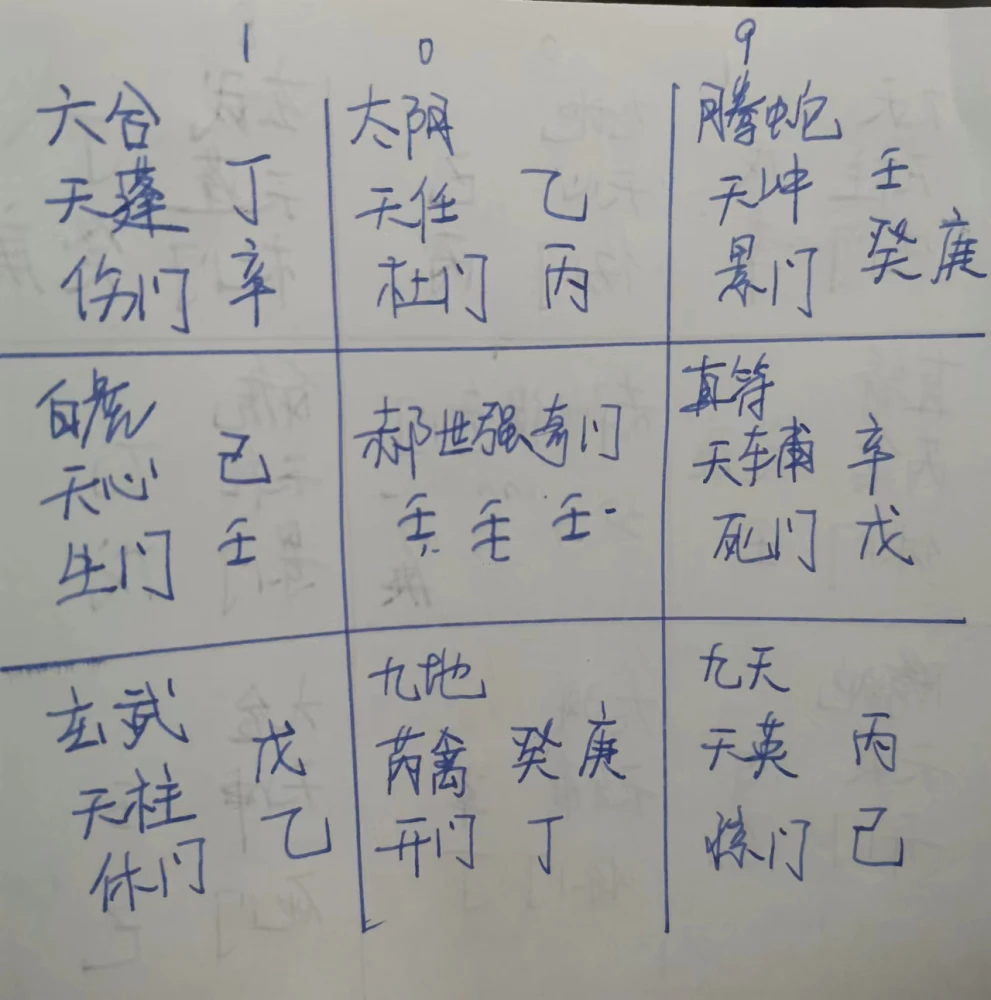 1 0 9
六合
天蓬 丁
伤门 辛
太阴
天任 乙
杜门 丙
腾蛇
天冲 壬
景门 癸 庚
白虎
天心 己
生门 壬
郝世强奇门
壬 壬 壬
真符
天辅 辛
死门 戊
玄武
天柱 戊
休门 乙
九地
芮禽 癸 庚
开门 丁
九天
天英 丙
惊门 己